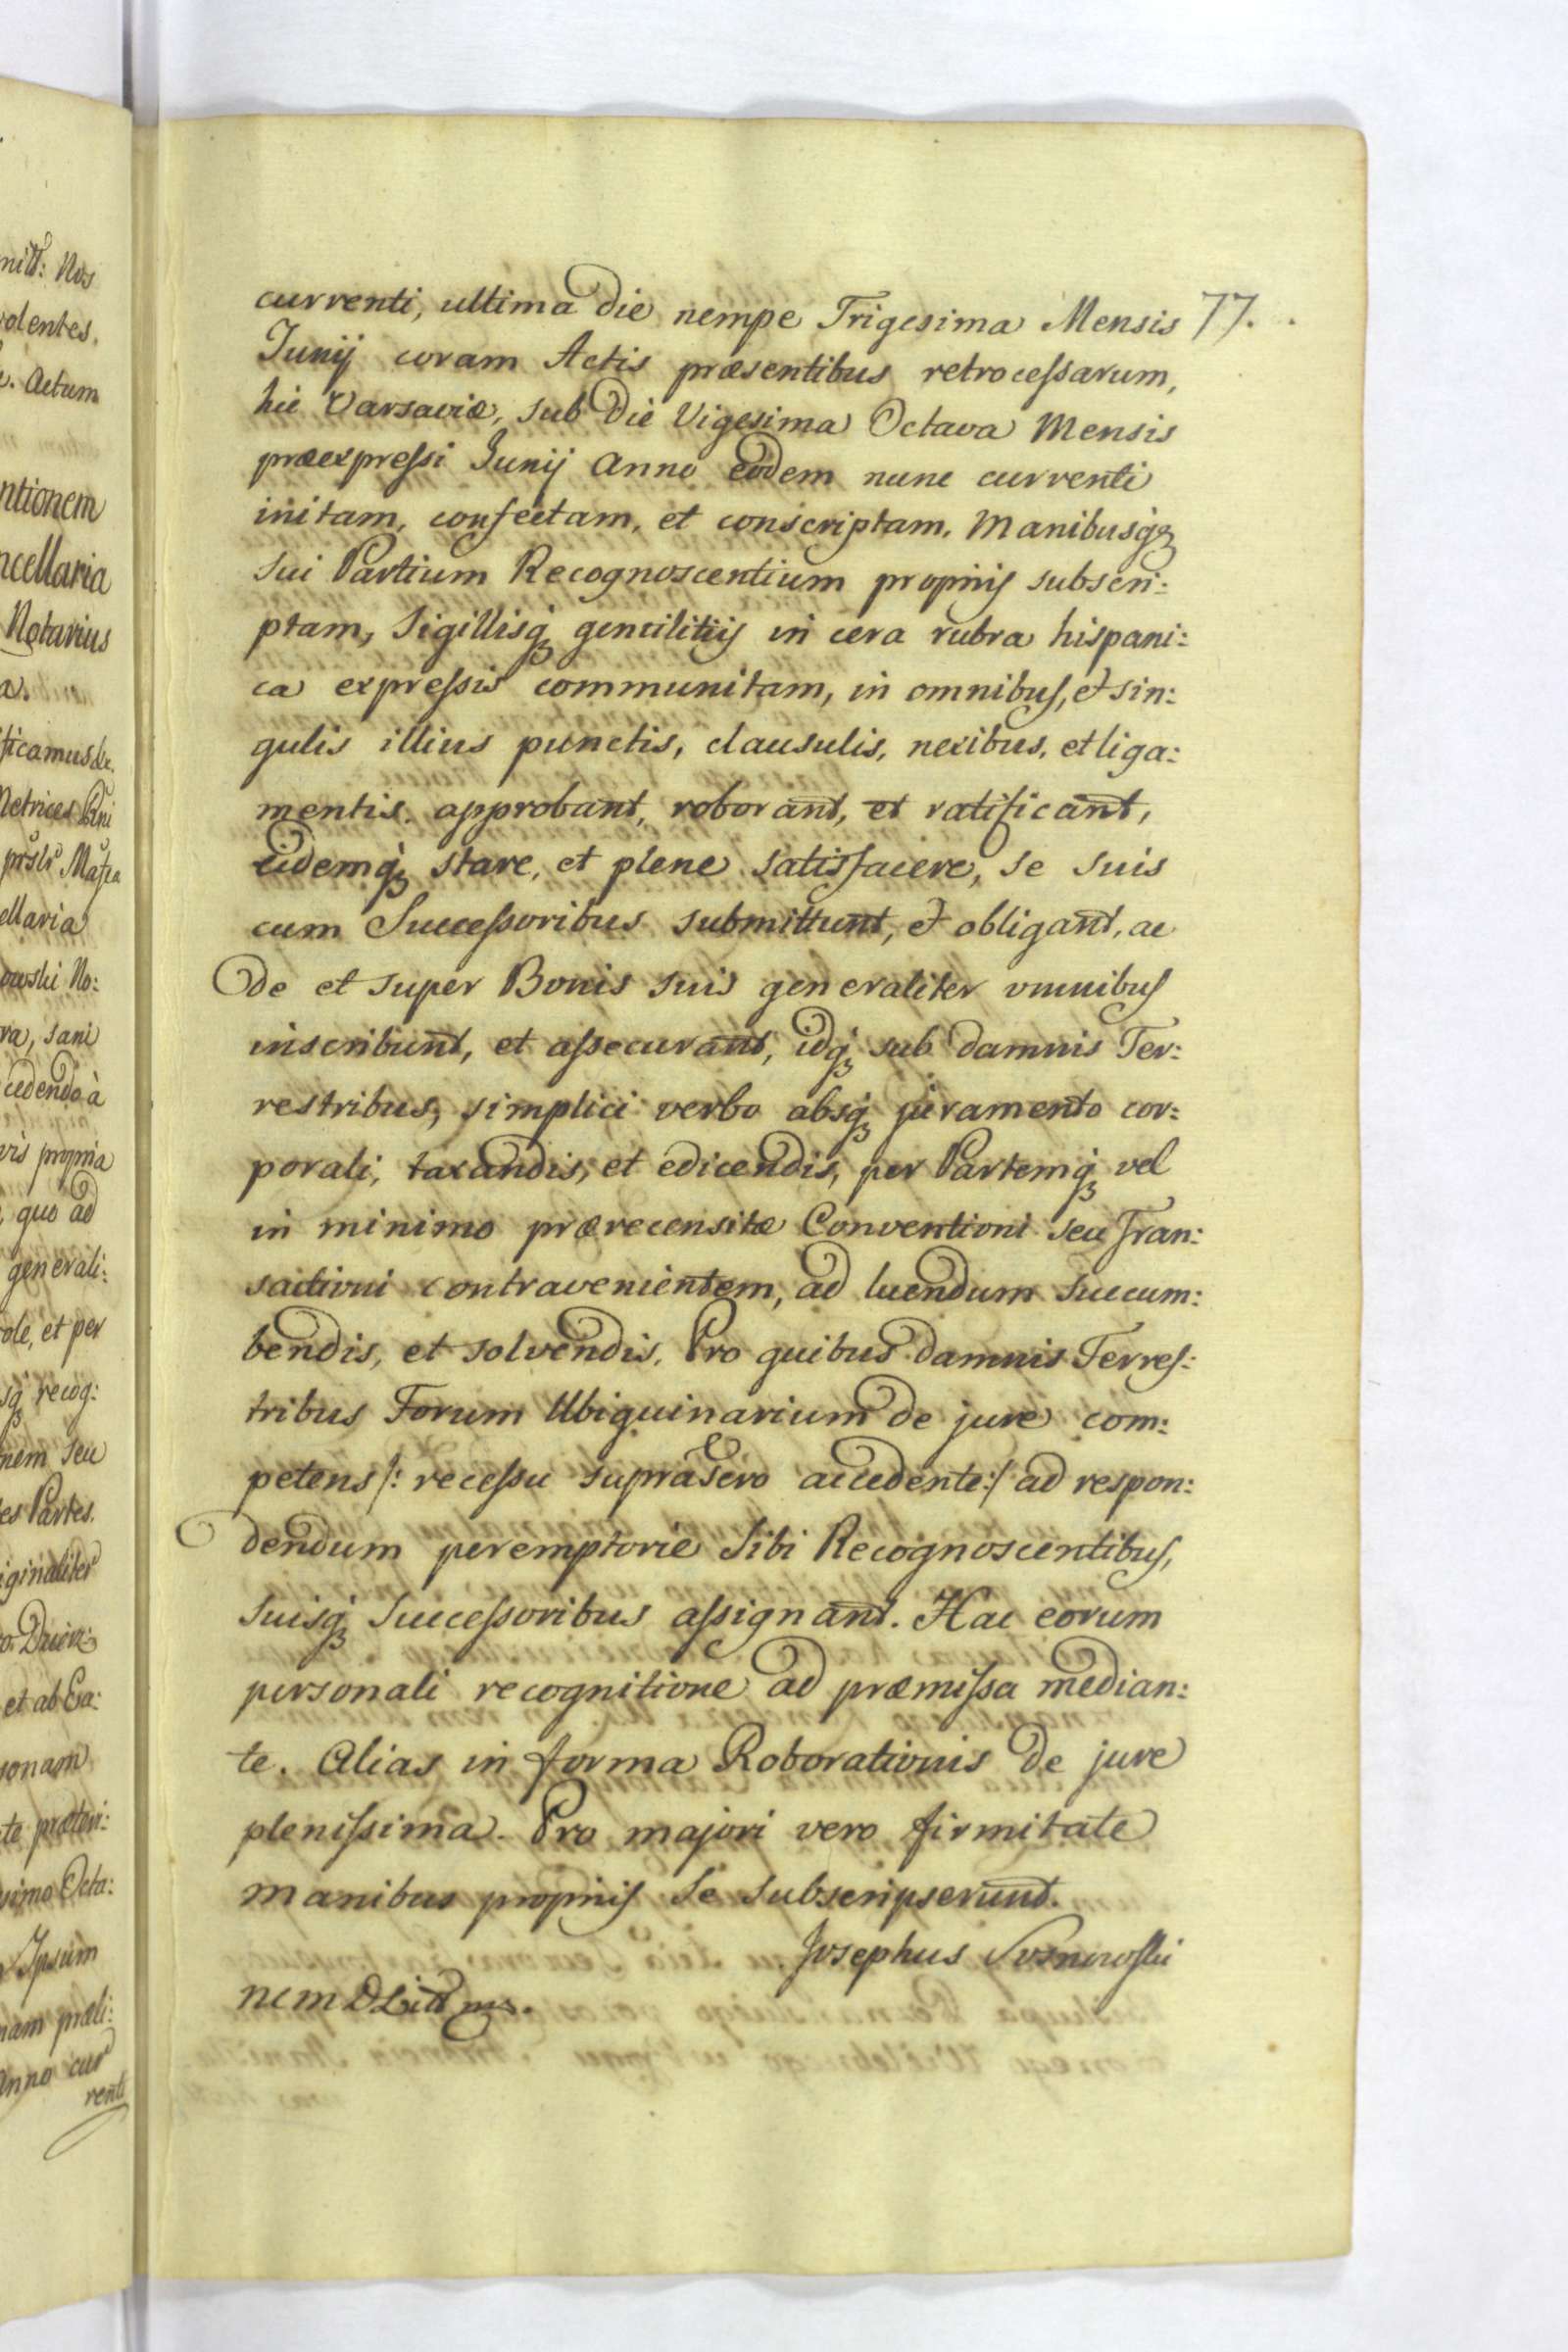 nitt: Nos
volentes.
Actum
ntionem
ncellaria
Notarius
a.
ficamus &c.
Metrices
prsli
ellaria
owski No:
ra, sani
cedendo à
vis propria
quo ad
generali:
ole, et per
sq recog:
nem seu
es Partes.
iginaliter
et ab
sonam
te præteri:
simo Octa:
Ipsum
nam præli:
Anno cur
renti
currenti, ultima die nempe Trigesima Mensis 77.
Junij coram Actis præsentibus retrocessarum,
hic Varsaviæ, sub Die Vigesima Octava Mensis
præexpressi Junij Anno eodem nunc currenti
initam, confectam, et conscriptam, Manibusqq
sui Partium Recognoscentium proprijs subscri:
ptam, Sigillisq gentilitijs in cera rubra hispani:
ca expressis communitam, in omnibus, et sin:
gulis illius punctis, clausulis, nexibus, et liga:
mentis approbant, roborant, et ratificant,
eidemq stare, et plene satisfacere, se suis
cum Successoribus submittunt, et obligant, ac
de et super Bonis suis generaliter omnibus
inscribunt, et assecurant, idq sub damnis Ter:
restribus, simplici verbo absq juramento cor:
porali, taxandis, et edicendis, per Partemq vel
in minimo prærecensitæ Conventioni seu Tran:
sactioni contravenientem, ad luendum succum:
bendis, et solvendis. Pro quibus damnis Terres:
tribus Forum Ubiquinarium de jure com:
petens /: recessu suprasero accedente :/ ad respon:
dendum peremptorie Sibi Recognoscentibus,
suisq Successoribus assignant. Hac eorum
personali recognitione ad præmissa median:
te. Alias in forma Roborationis de jure
plenissima. Pro majori vero firmitate
manibus proprijs se subscripserunt.
Josephus Sosnowski